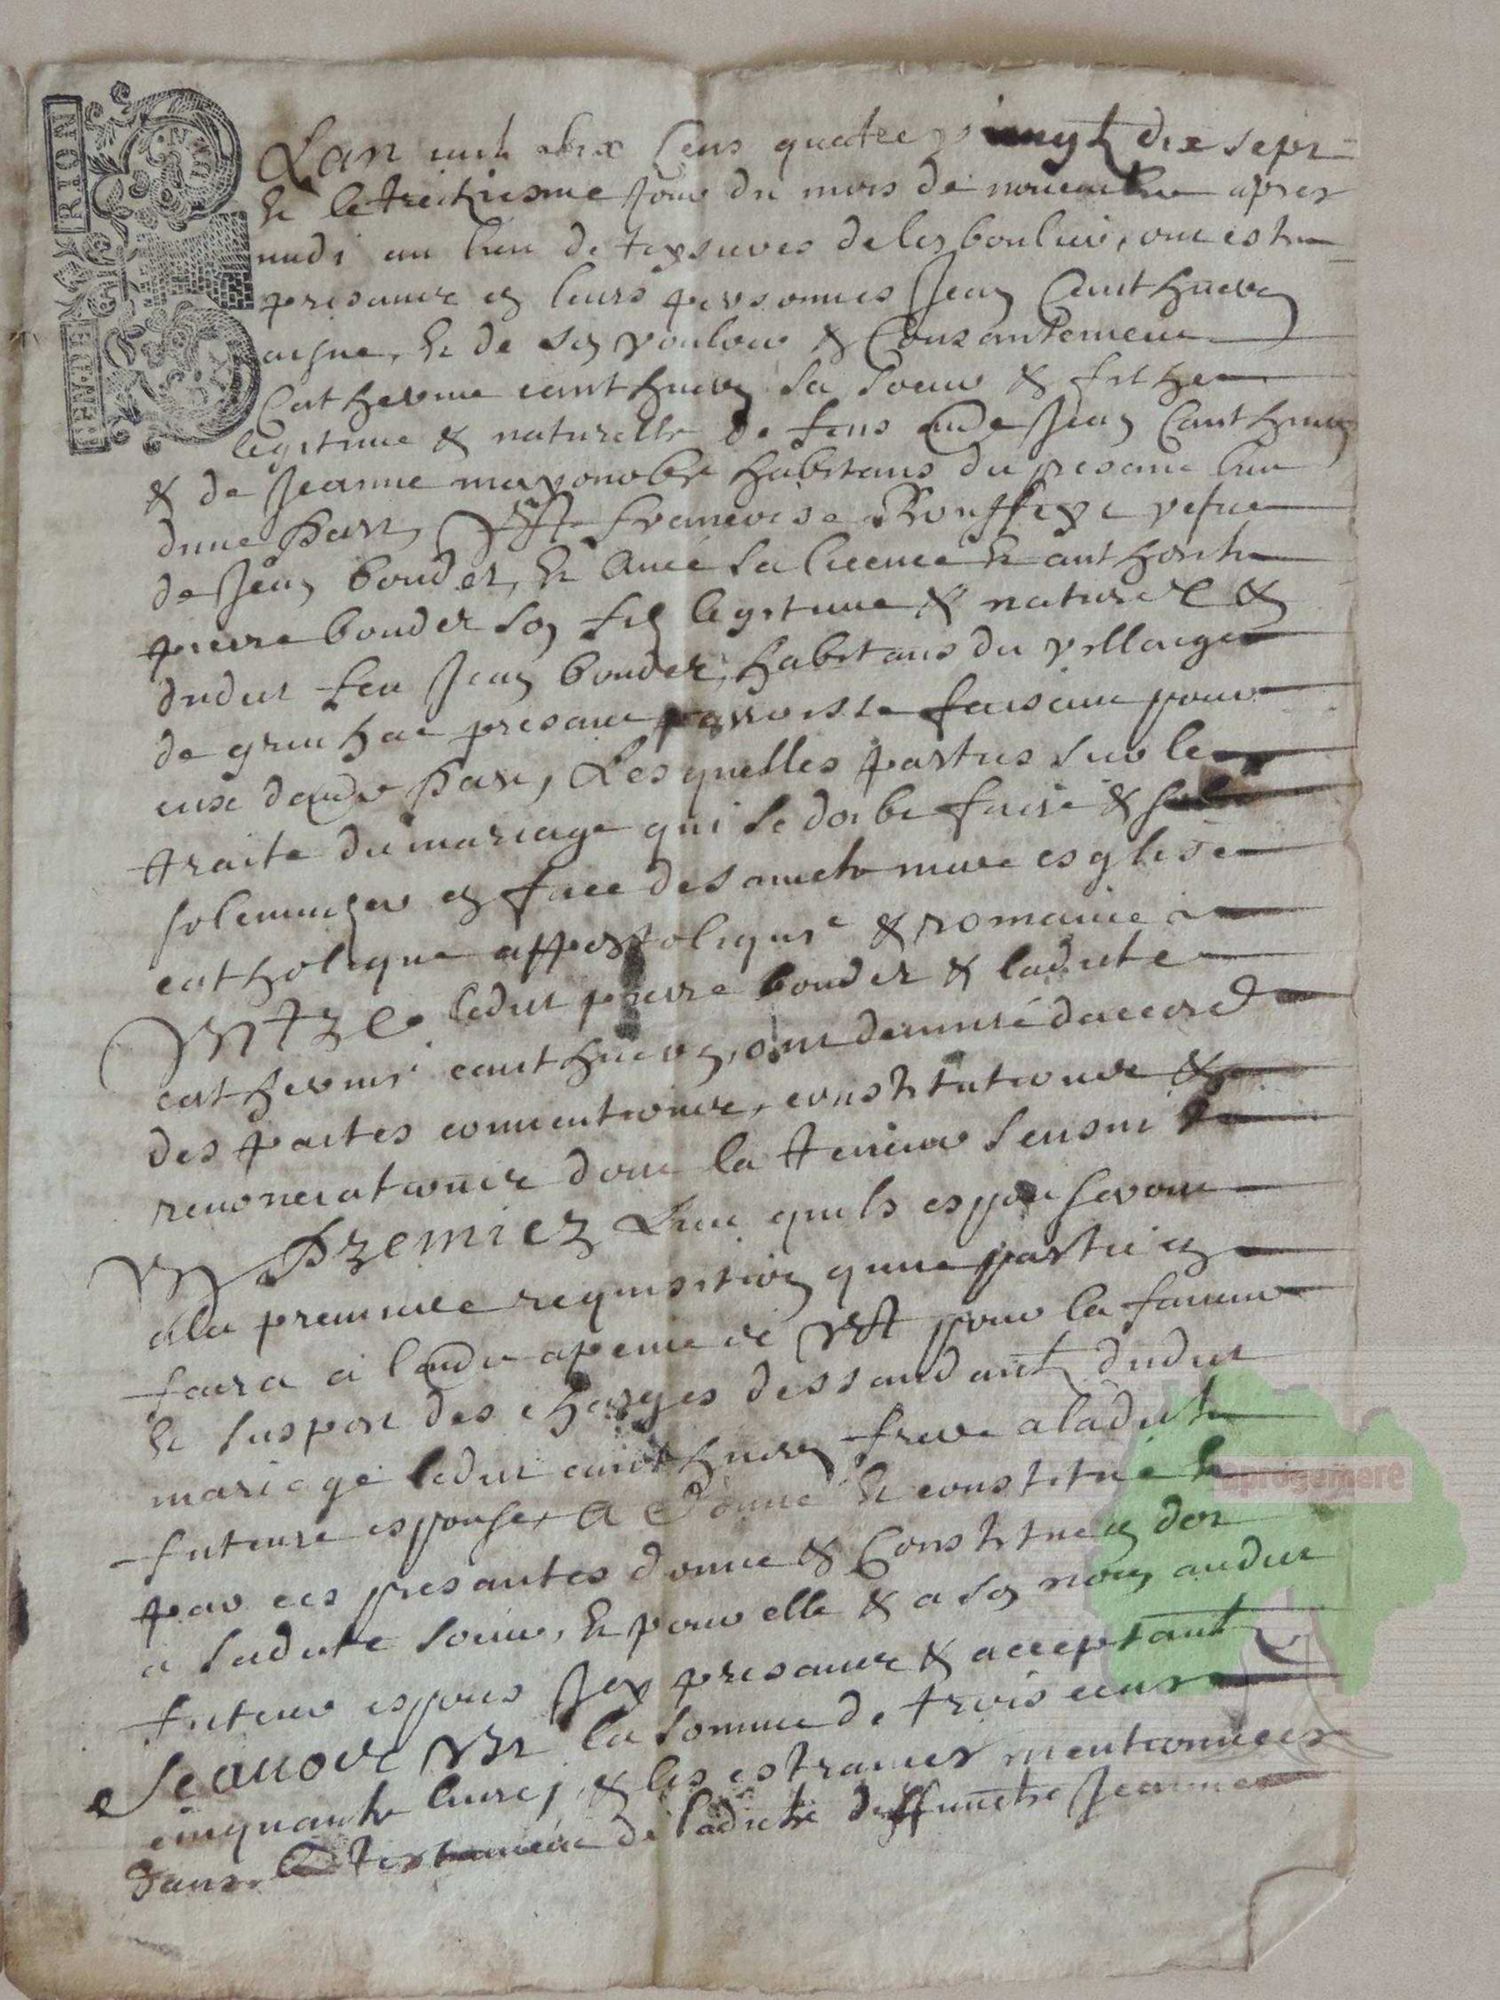 RION
Lan mil six Cens quatre vingt dix sept
& le treitziesme Jour du mois de novembre apres
midi au lieu de teyssieres de les boulies, ont este
presans en leurs personnes Jean Canthuern
aisne, & de son vouloir & Consantement
Catherine canthuern sa soeur & filhe
legitime & naturelle de feus autre Jean Canthuern
& de Jeanne habitans du presant lieu
dune Part, Et francoise vefue
de Jean bouder, & avec sa licence & authorite
pierre bouder son filz legitime & naturel &
dudit feu Jean bouder, habitans du villaige
de presant parroisse faisant pour
eux dautre Part, Lesquelles parties sur le
traite du mariage qui se doibt faire &
solempnizer en face de saincte mere esglise
catholique appostolique & romaine
Entre ledit pierre bouder & ladite
catherine canthuern, ont demuré daccord
des pactes conventions, constitutions &
renonciations dont la teneur sensuit
Premier Lieu quils espouseront
ala premiere requisition qune partie en
faira a lautre apeine de Et pour la faveur
& susport des charges dessandant dudit
mariage ledit canthuern frere a ladite
future espouse, a Donné & constitué &
par ces presantes donne & Constitue en dot
a sadite soeur, & pour elle & a son nom audit
futeur espous Icy presant & acceptant
Scavoir Est la somme de trois cens
cinquante livres, & les estraines mentionnees
dans le testament de ladite deffuncte Jeanne
aprogemere